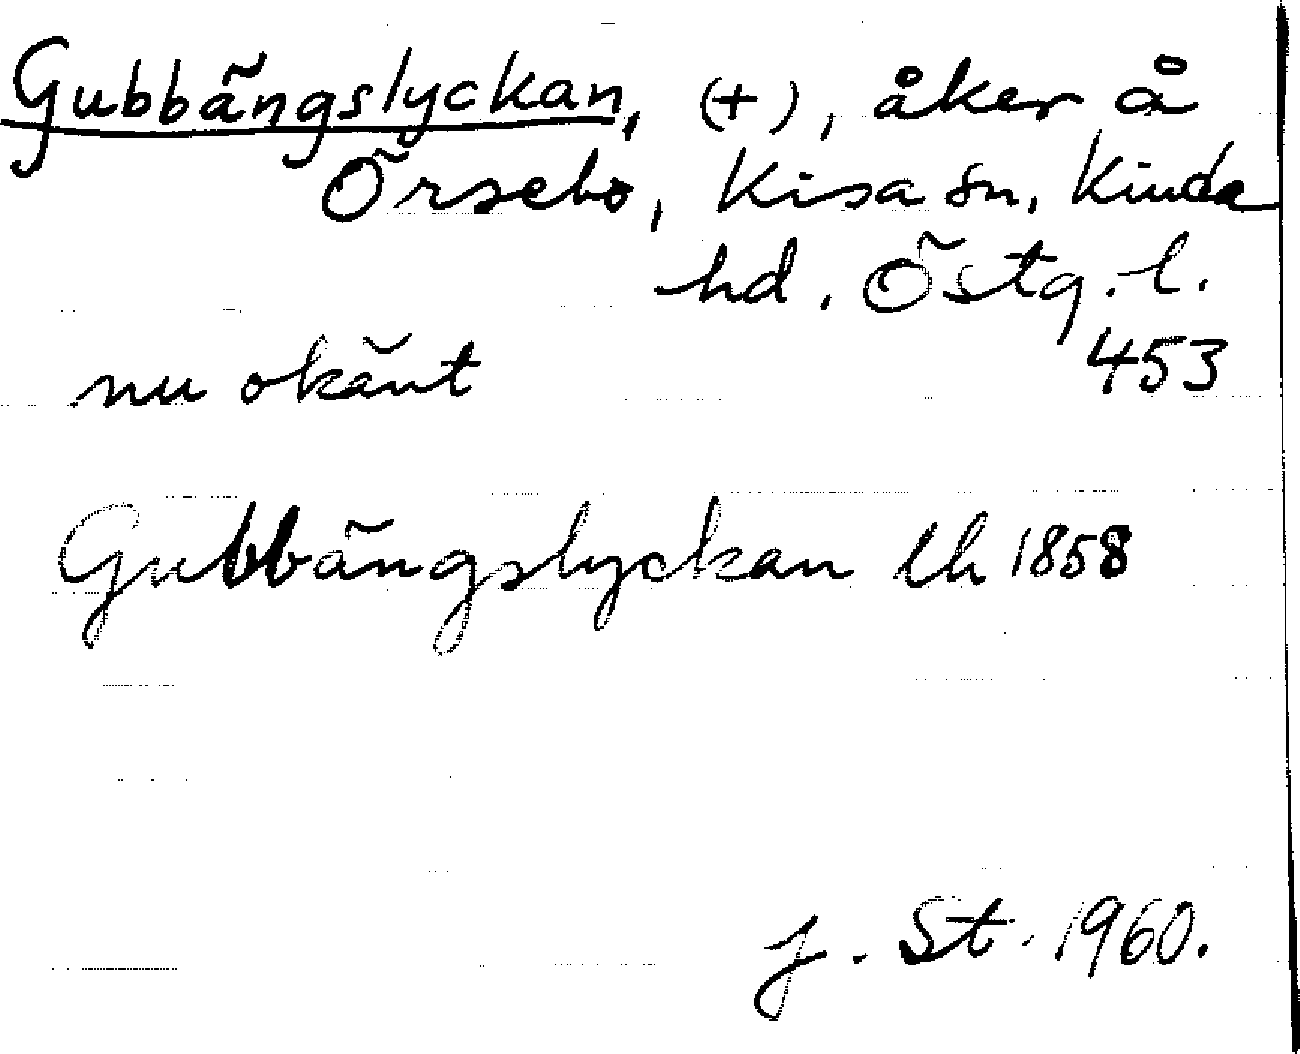 Gubbängslyckan, (+), åker å
Örsebo, Kisa sn, Kinda
hd. Östg. l.
nu okänt 453
Gubbängslyckan lh 1858
J. St. 1960.